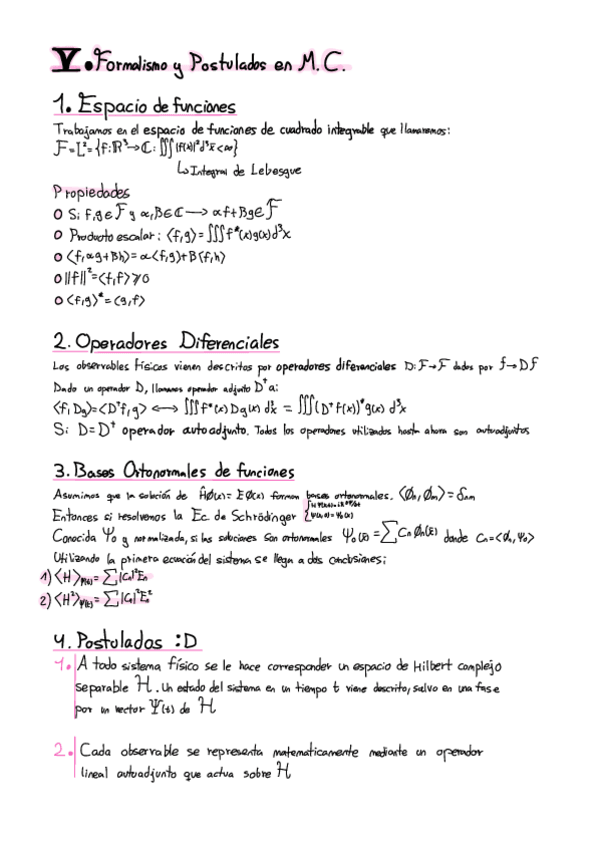 V. Formalismo y Postulados en M.C.
1. Espacio de funciones
Trabajamos en el espacio de funciones de cuadrado integrable que llamaremos:
F=L²={f:ℝ³→ℂ: ∭|f(x)|²d³x<∞}
↳Integral de Lebesgue
Propiedades
O Si f,g∈F y α,β∈ℂ → αf+βg∈F
O Producto escalar: ⟨f,g⟩=∭f*(x)g(x)d³x
O ⟨f,αg+βh⟩=α⟨f,g⟩+β⟨f,h⟩
O ||f||²=⟨f,f⟩⩾0
O ⟨f,g⟩*=⟨g,f⟩
2. Operadores Diferenciales
Los observables físicos vienen descritos por operadores diferenciales D:F→F dados por f→Df
Dado un operador D, llamamos operador adjunto D† a:
⟨f,Dg⟩=⟨D†f,g⟩ ⟷ ∭f*(x)Dg(x)d³x = ∭(D†f(x))*g(x) d³x
Si D=D† operador autoadjunto. Todos los operadores utilizados hasta ahora son autoadjuntos
3. Bases Ortonormales de funciones
Asumimos que la solución de Ĥφ(x)=Eφ(x) forman bases ortonormales. ⟨φn,φm⟩=δnm
Entonces si resolvemos la Ec. de Schrödinger
Conocida Ψ₀ y normalizada, si las soluciones son ortonormales Ψ₀(x)=∑Cnφn(x) donde Cn=⟨φn,Ψ₀⟩
Utilizando la primera ecuación del sistema se llega a dos conclusiones:
1) ⟨H⟩Ψ(t)=∑|Cn|²En
2) ⟨H²⟩Ψ(t)=∑|Cn|²En²
4. Postulados :D
1. A todo sistema físico se le hace corresponder un espacio de Hilbert complejo
separable H. Un estado del sistema en un tiempo t viene descrito, salvo en una fase
por un vector Ψ(t) de H
2. Cada observable se representa matematicamente mediante un operador
lineal autoadjunto que actua sobre H